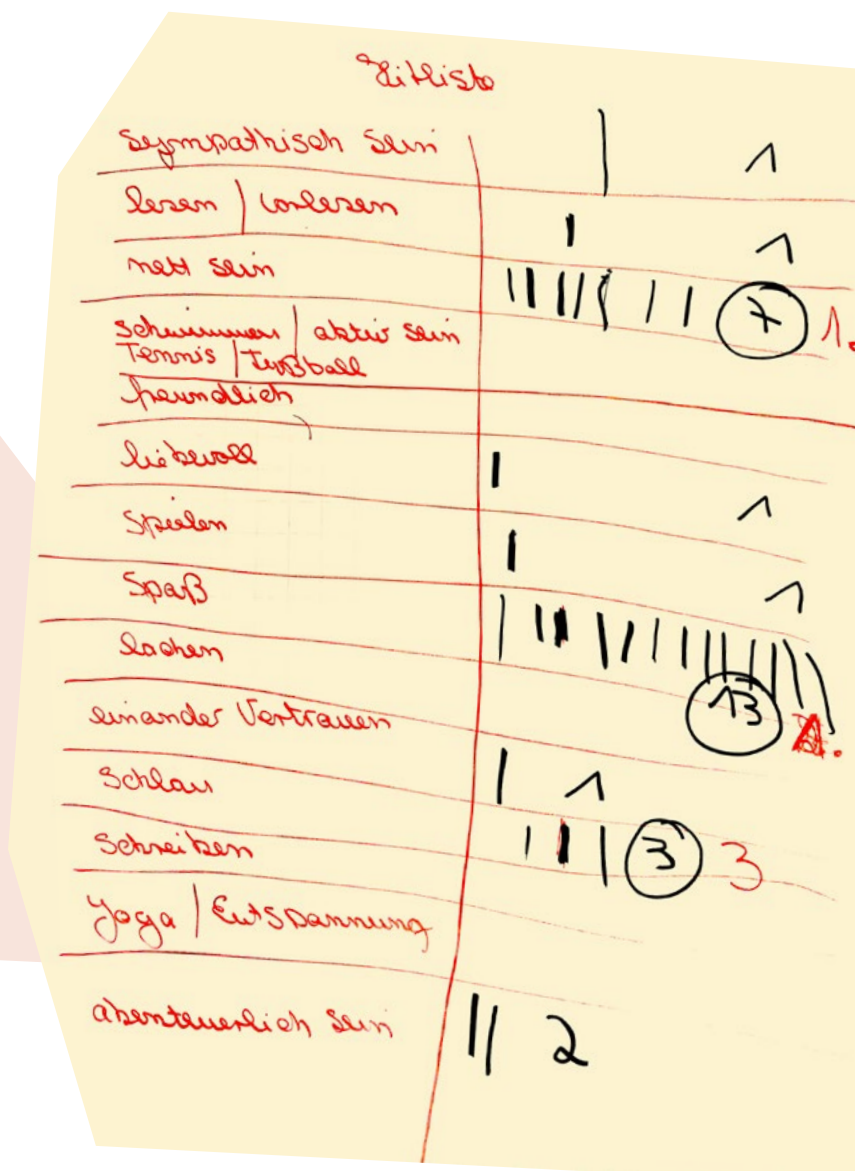 Hitliste
sympathisch sein | 1
lesen / vorlesen | 1
nett sein ||||||| 7 1.
schwimmen / aktiv sein
Tennis / Fußball
freundlich
liebevoll | 1
spielen | 1
Spaß ||||||||||||| 13
lachen
einander Vertrauen
schlau | 1
schreiben ||| 3 3
Yoga / Entspannung
abenteuerlich sein || 2